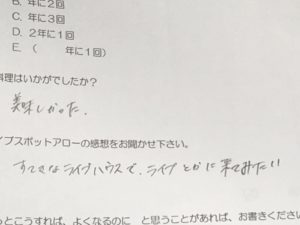 B. 年に2回
C. 年に3回
D. 2年に1回
E. (　　年に1回)
料理はいかがでしたか?
美味しかった.
イブスポットアローの感想をお聞かせ下さい。
すてきなライブハウスで、ライブとかに来てみたい!
っとこうすれば、よくなるのに　と思うことがあれば、お書きくださ